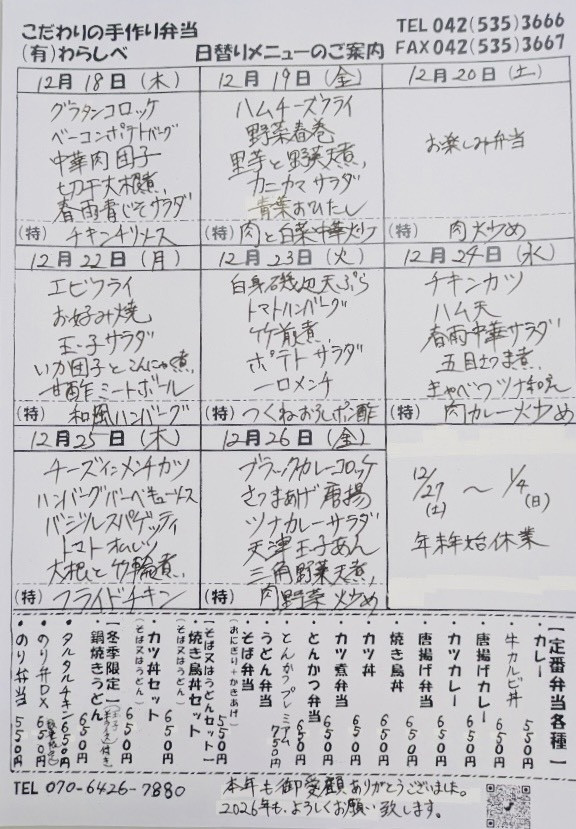 こだわりの手作り弁当
(有)わらしべ
日替りメニューのご案内
TEL 042(535)3666
FAX 042(535)3667
12月18日(木)
グラタンコロッケ
ベーコンポテトバーグ
中華肉団子
切干大根煮
春雨青じそサラダ
(特) チキンチリソース
12月19日(金)
ハムチーズフライ
野菜春巻
里芋と野菜煮
カニカマサラダ
青菜おひたし
(特) 肉と白菜中華炒め
12月20日(土)
お楽しみ弁当
(特) 肉炒め
12月22日(月)
エビフライ
お好み焼
玉子サラダ
いか団子とこんにゃく煮
甘酢ミートボール
(特) 和風ハンバーグ
12月23日(火)
白身磯辺天ぷら
トマトハンバーグ
筑前煮
ポテトサラダ
一口メンチ
(特) つくねおろしポン酢
12月24日(水)
チキンカツ
ハム天
春雨中華サラダ
五目さつま煮
キャベツツナ和え
(特) 肉カレー炒め
12月25日(木)
チーズインメンチカツ
ハンバーグバーベキューソース
バジルスパゲッティ
トマトオムレツ
大根と竹輪煮
(特) フライドチキン
12月26日(金)
ブラックカレーコロッケ
さつまあげ唐揚
ツナカレーサラダ
天津玉子あん
三角野菜天煮
(特) 肉野菜炒め
12/27(土)〜1/4(日)
年末年始休業
【定番弁当各種】
カレー 520円
牛カルビ丼 650円
唐揚げカレー 650円
カツカレー 650円
唐揚げ弁当 650円
焼き鳥丼 650円
カツ丼 650円
カツ煮弁当 650円
とんかつ弁当 650円
とんかつプレミアム 750円
うどん弁当
そば弁当
(おにぎり+かきあげ) 550円
【そば又はうどんセット】
焼き鳥丼セット
(そば又はうどん) 650円
カツ丼セット
(そば又はうどん) 650円
【冬季限定】
鍋焼きうどん 650円
タルタルチキン 650円
のり弁DX 650円
のり弁当 550円
TEL 070-6426-7880
本年も御愛顧ありがとうございました。
2026年も、よろしくお願い致します。